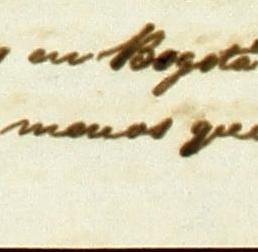 en Bogotá
menos que